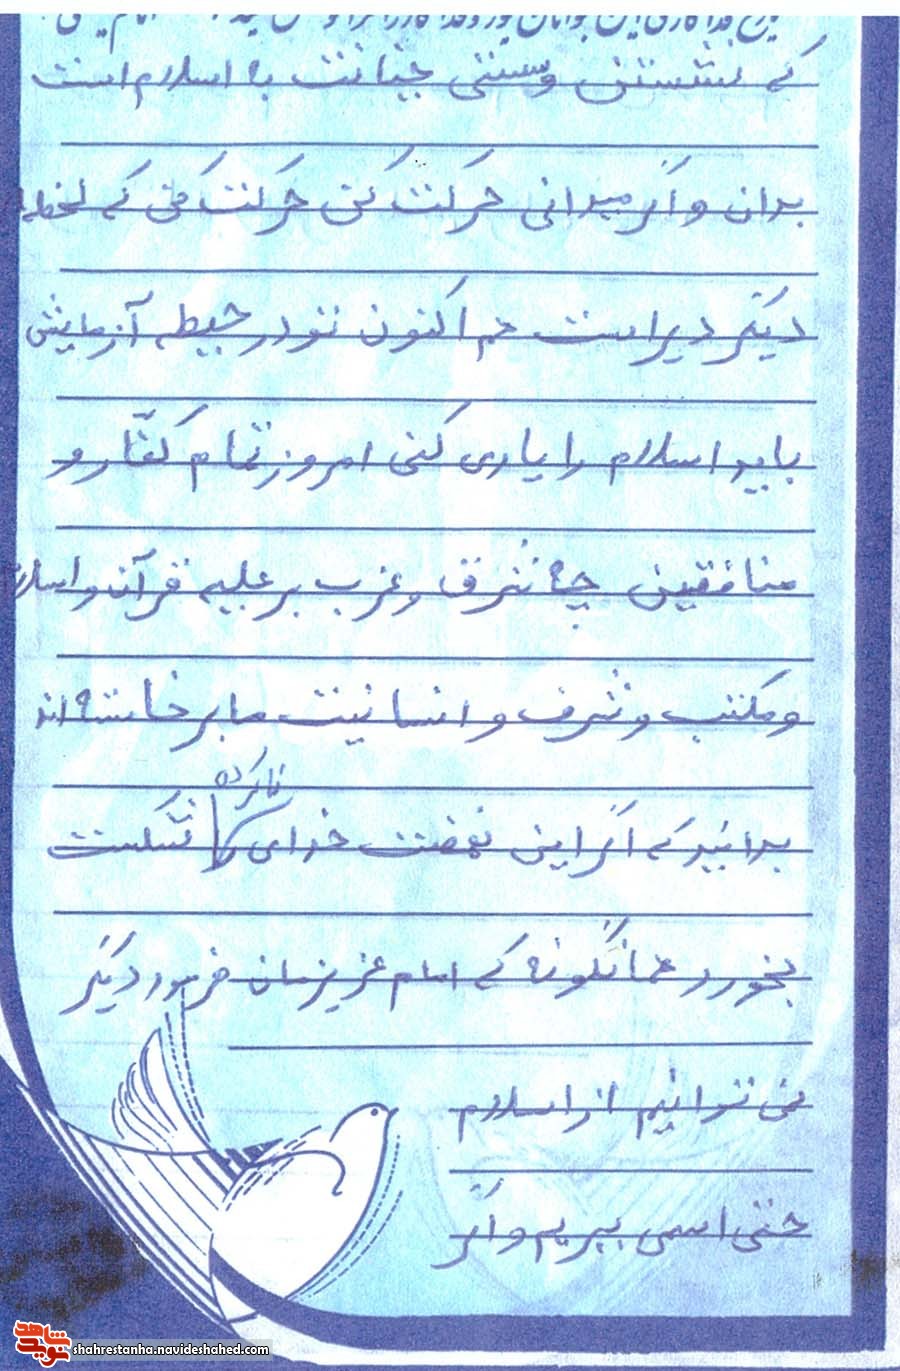 که نشستن و سستی خیانت به اسلام است
بدان و اگر میدانی حرکت کن حرکت کنی که لحظه
دیگر دیر است هم اکنون تو در حیطه آزمایش
باید اسلام را یاری کنی امروز تمام کفار و
منافقین چه شرق و غرب بر علیه قرآن و اسلام
و مکتب و شرف و انسانیت ما برخاسته اند
بدانید که اگر این نهضت خدای نا کرده شکست
بخورد همانگونه که امام عزیزمان فرمود دیگر
نمی توانیم از اسلام
حتی اسمی ببریم و اگر
نوید شاهد
shahrestanha.navideshahed.com